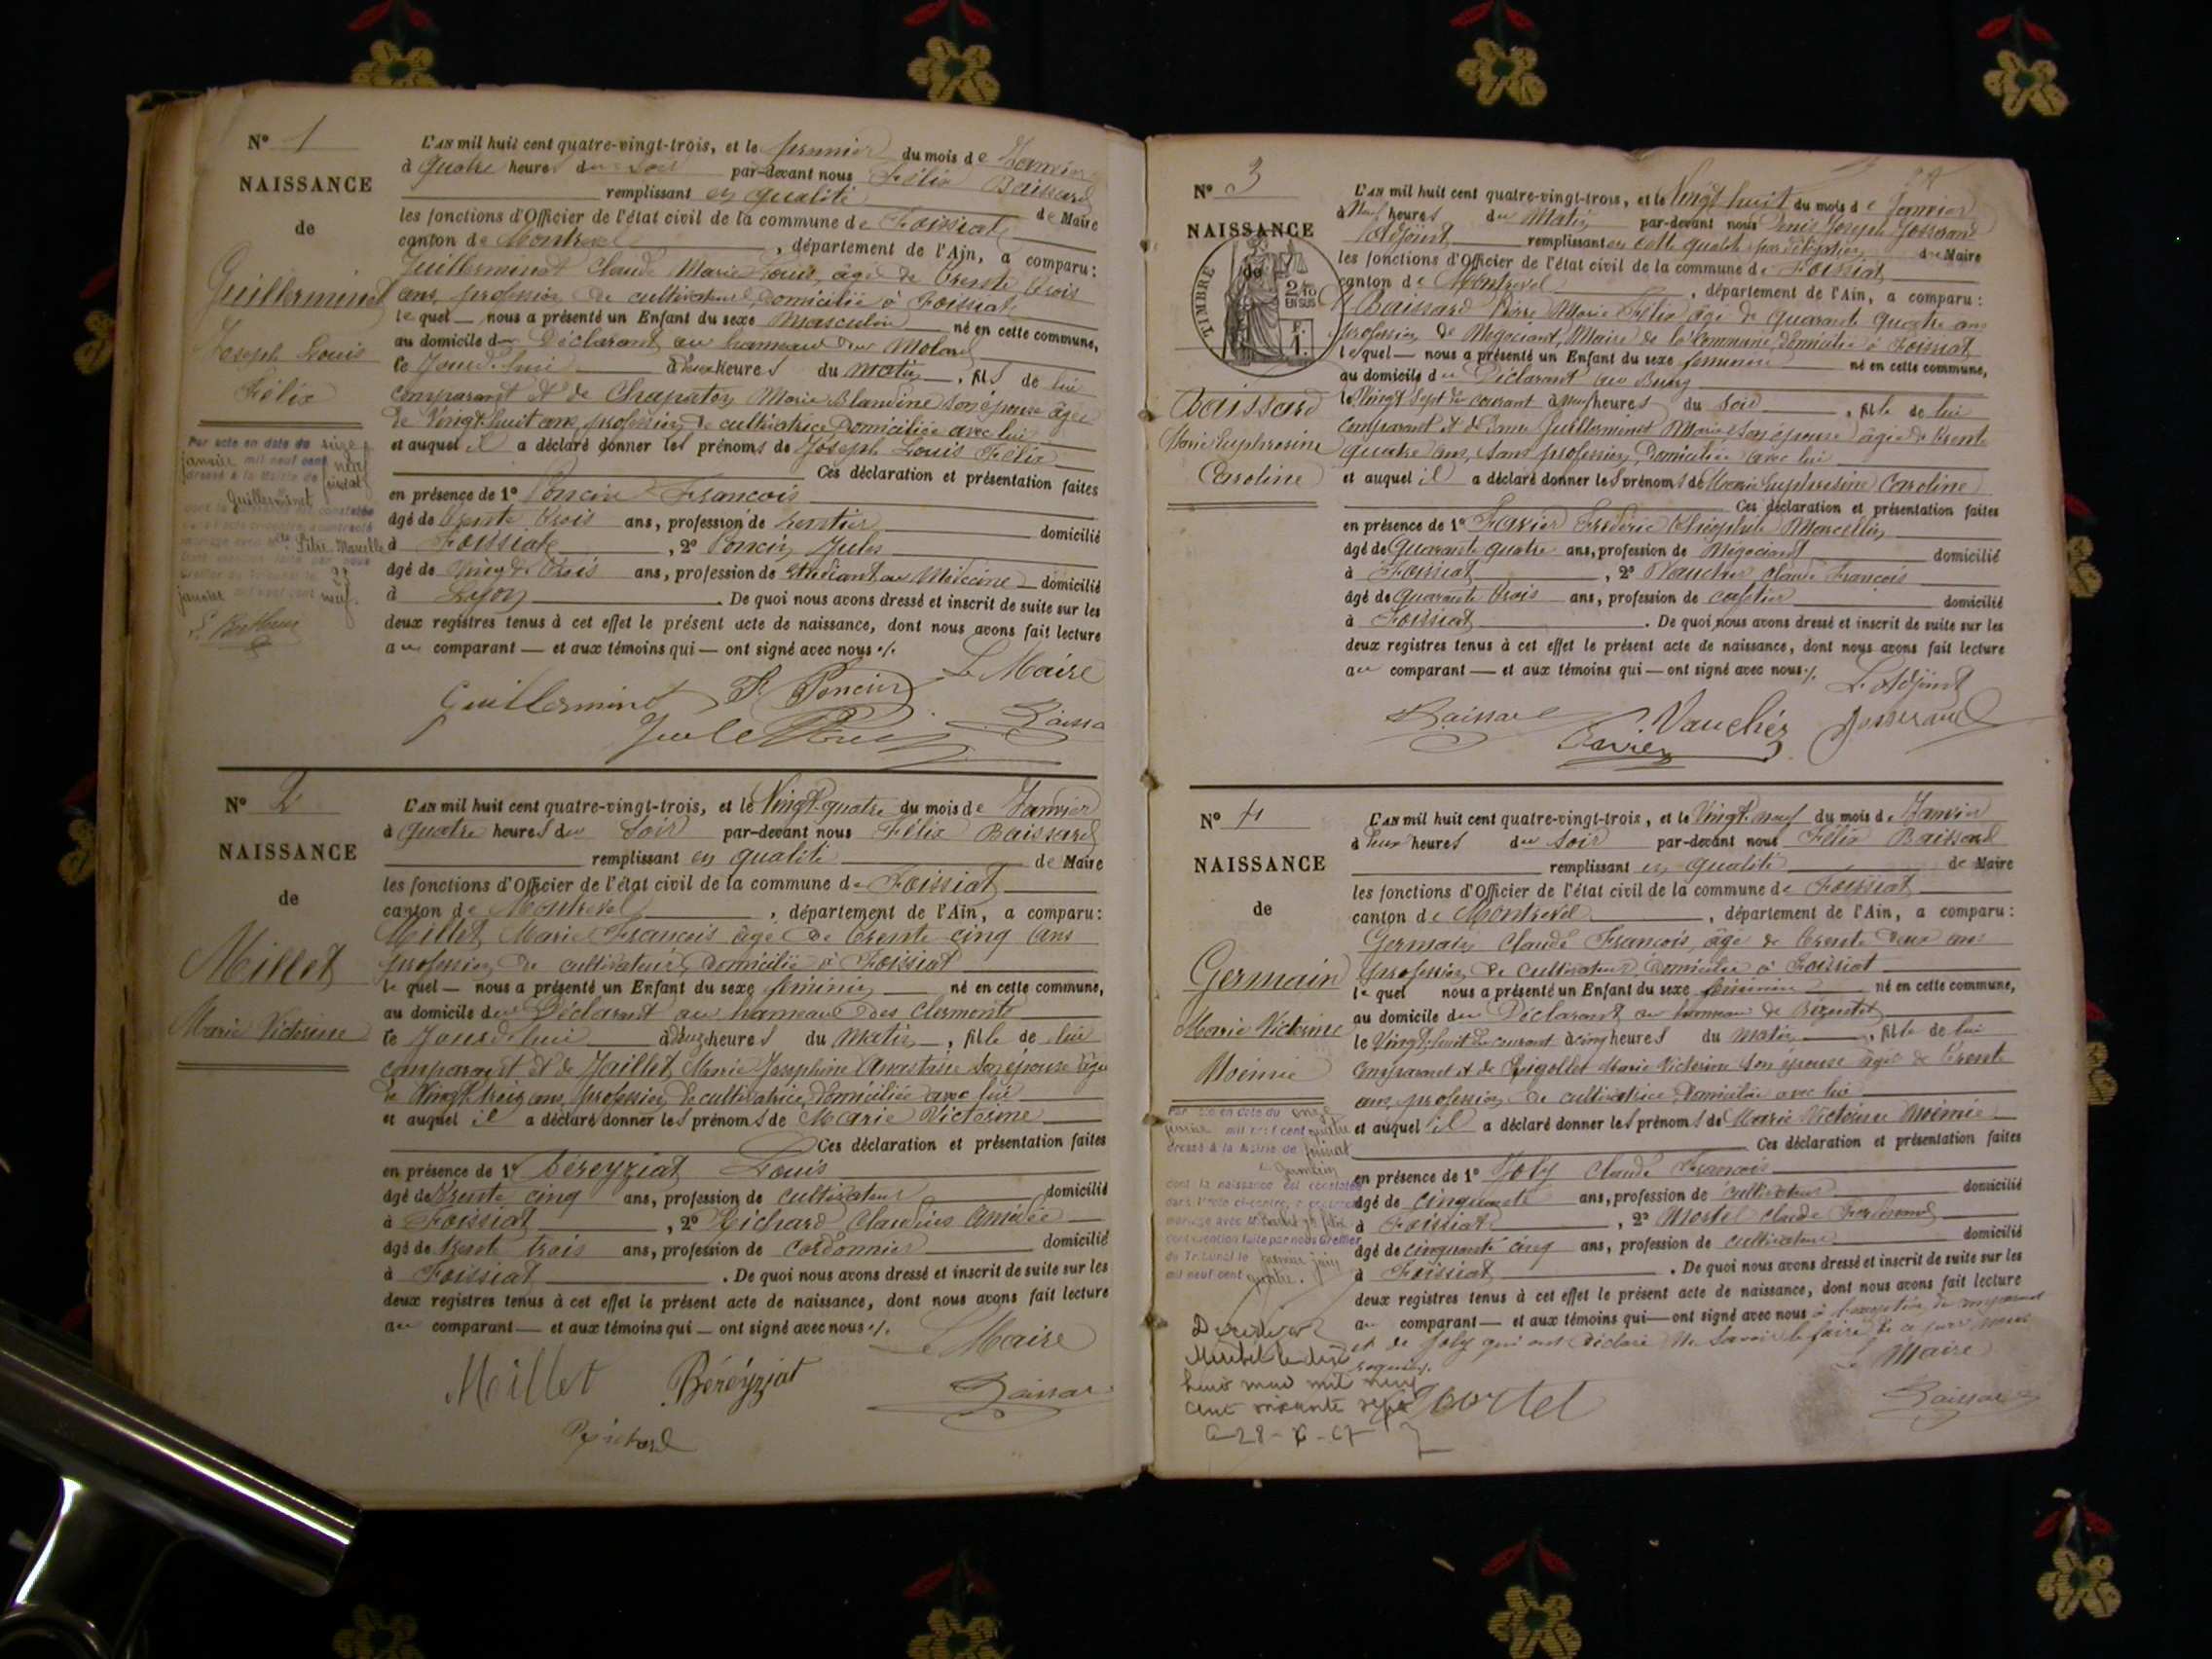 N° 1
NAISSANCE
de
Guilleminet
Joseph Louis
Félix
Par acte en date du seize
janvier mil neuf cent neuf
dressé à la Mairie de foissiat
Guilleminet
dont la naissance est constatée
dans l'acte ci-contre a contracté
mariage avec Mlle Marcelle
Greffier du Tribunal le 23
janvier mil neuf cent neuf.
L'AN mil huit cent quatre-vingt-trois, et le premier du mois de Janvier
à quatre heures du soir par-devant nous Félix Baissard
remplissant en qualité de Maire
les fonctions d'Officier de l'état civil de la commune de Foissiat
canton de Montrevel, département de l'Ain, a comparu :
Guilleminot Claude Marie Louis, âgé de trente trois
ans, profession de cultivateur, domicilié à Foissiat
lequel — nous a présenté un Enfant du sexe Masculin né en cette commune,
au domicile du Déclarant au hameau du Molard
le Jourd'hui à deux heures du matin, fils de lui
comparant et de Chapaton Marie Blandine son épouse âgée
de Vingt huit ans, profession de cultivatrice domiciliée avec lui
et auquel il a déclaré donner les prénoms de Joseph Louis Félix
Ces déclaration et présentation faites
en présence de 1° Poncin François
âgé de trente trois ans, profession de rentier domicilié
à Foissiat, 2° Poncin Jules
âgé de vingt trois ans, profession de étudiant en Médecine domicilié
à Lyon. De quoi nous avons dressé et inscrit de suite sur les
deux registres tenus à cet effet le présent acte de naissance, dont nous avons fait lecture
au comparant — et aux témoins qui — ont signé avec nous ./.
Le Maire
Guilleminot F. Poncin
Jules Poncin Baissa
N° 2
NAISSANCE
de
Millet
Marie Victorine
L'AN mil huit cent quatre-vingt-trois, et le Vingt-quatre du mois de Janvier
à quatre heures du soir par-devant nous Félix Baissard
remplissant en qualité de Maire
les fonctions d'Officier de l'état civil de la commune de Foissiat
canton de Montrevel, département de l'Ain, a comparu :
Millet Marie François âgé de trente cinq ans
profession de cultivateur, domicilié à Foissiat
lequel — nous a présenté un Enfant du sexe féminin né en cette commune,
au domicile du Déclarant au hameau des Clermonts
le Jourd'hui à heures du matin, fille de lui
comparant et de Jaillet Marie Josephine Anastasie son épouse âgée
de Vingt trois ans, profession de cultivatrice, domiciliée avec lui
et auquel il a déclaré donner les prénoms de Marie Victorine
Ces déclaration et présentation faites
en présence de 1° Béreyziat Louis
âgé de trente cinq ans, profession de cultivateur domicilié
à Foissiat, 2° Richard Claudius Amédée
âgé de trente trois ans, profession de Cordonnier domicilié
à Foissiat. De quoi nous avons dressé et inscrit de suite sur les
deux registres tenus à cet effet le présent acte de naissance, dont nous avons fait lecture
au comparant — et aux témoins qui — ont signé avec nous ./.
Le Maire
Millet Béréyziat Baissar
Richard
N° 3
NAISSANCE
de
TIMBRE
2/10
EN SUS
F.
1.
Baissard
Marie Euphrosine
Caroline
L'AN mil huit cent quatre-vingt-trois, et le Vingt huit du mois de Janvier
à Neuf heures du Matin par-devant nous Denis Joseph Josserand
Adjoint remplissant en cette qualité par délégation du Maire
les fonctions d'Officier de l'état civil de la commune de Foissiat
canton de Montrevel, département de l'Ain, a comparu :
Baissard Pierre Marie Félix âgé de quarante quatre ans
profession de Négociant, Maire de la Commune, domicilié à Foissiat
lequel — nous a présenté un Enfant du sexe féminin né en cette commune,
au domicile du Déclarant au Bourg
le Vingt Sept du courant à neuf heures du soir, fille de lui
comparant et de Dame Guilleminot Marie son épouse âgée de trente
quatre ans, sans profession, domiciliée avec lui
et auquel il a déclaré donner les prénoms de Marie Euphrosine Caroline
Ces déclaration et présentation faites
en présence de 1° Favier Frédéric Théophile Marcellin
âgé de quarante quatre ans, profession de Négociant domicilié
à Foissiat, 2° Vaucher Claude François
âgé de quarante trois ans, profession de cafetier domicilié
à Foissiat. De quoi nous avons dressé et inscrit de suite sur les
deux registres tenus à cet effet le présent acte de naissance, dont nous avons fait lecture
au comparant — et aux témoins qui — ont signé avec nous ./.
L'Adjoint
Baissard Favier Vaucher Josserand
N° 4
NAISSANCE
de
Germain
Marie Victorine
Noémie
Par acte en date du onze
février mil neuf cent quatre
dressé à la Mairie de foissiat
L. Germain
dont la naissance est constatée
dans l'acte ci-contre, a contracté
mariage avec M.
Mention faite par nous Greffier
du Tribunal le premier juin
mil neuf cent quatre.
Décédée à
Miribel le dix
huit mai mil neuf
cent soixante sept
L'AN mil huit cent quatre-vingt-trois, et le Vingt neuf du mois de Janvier
à deux heures du soir par-devant nous Félix Baissard
remplissant en qualité de Maire
les fonctions d'Officier de l'état civil de la commune de Foissiat
canton de Montrevel, département de l'Ain, a comparu :
Germain Claude François, âgé de trente deux ans
profession de cultivateur, domicilié à Foissiat
lequel nous a présenté un Enfant du sexe féminin né en cette commune,
au domicile du Déclarant au hameau de
le Vingt huit du courant à cinq heures du matin, fille de lui
comparant et de Marie Victorine son épouse âgée de trente
ans, profession de cultivatrice domiciliée avec lui
et auquel il a déclaré donner les prénoms de Marie Victorine Noémie
Ces déclaration et présentation faites
en présence de 1° Joly Claude François
âgé de cinquante ans, profession de cultivateur domicilié
à Foissiat, 2° Mortel Claude Ferdinand
âgé de cinquante cinq ans, profession de cultivateur domicilié
à Foissiat. De quoi nous avons dressé et inscrit de suite sur les
deux registres tenus à cet effet le présent acte de naissance, dont nous avons fait lecture
au comparant — et aux témoins qui — ont signé avec nous à l'exception du comparant
et de Joly qui ont déclaré ne savoir le faire de ce par nous
requis ./.
Le Maire
Mortel Baissard